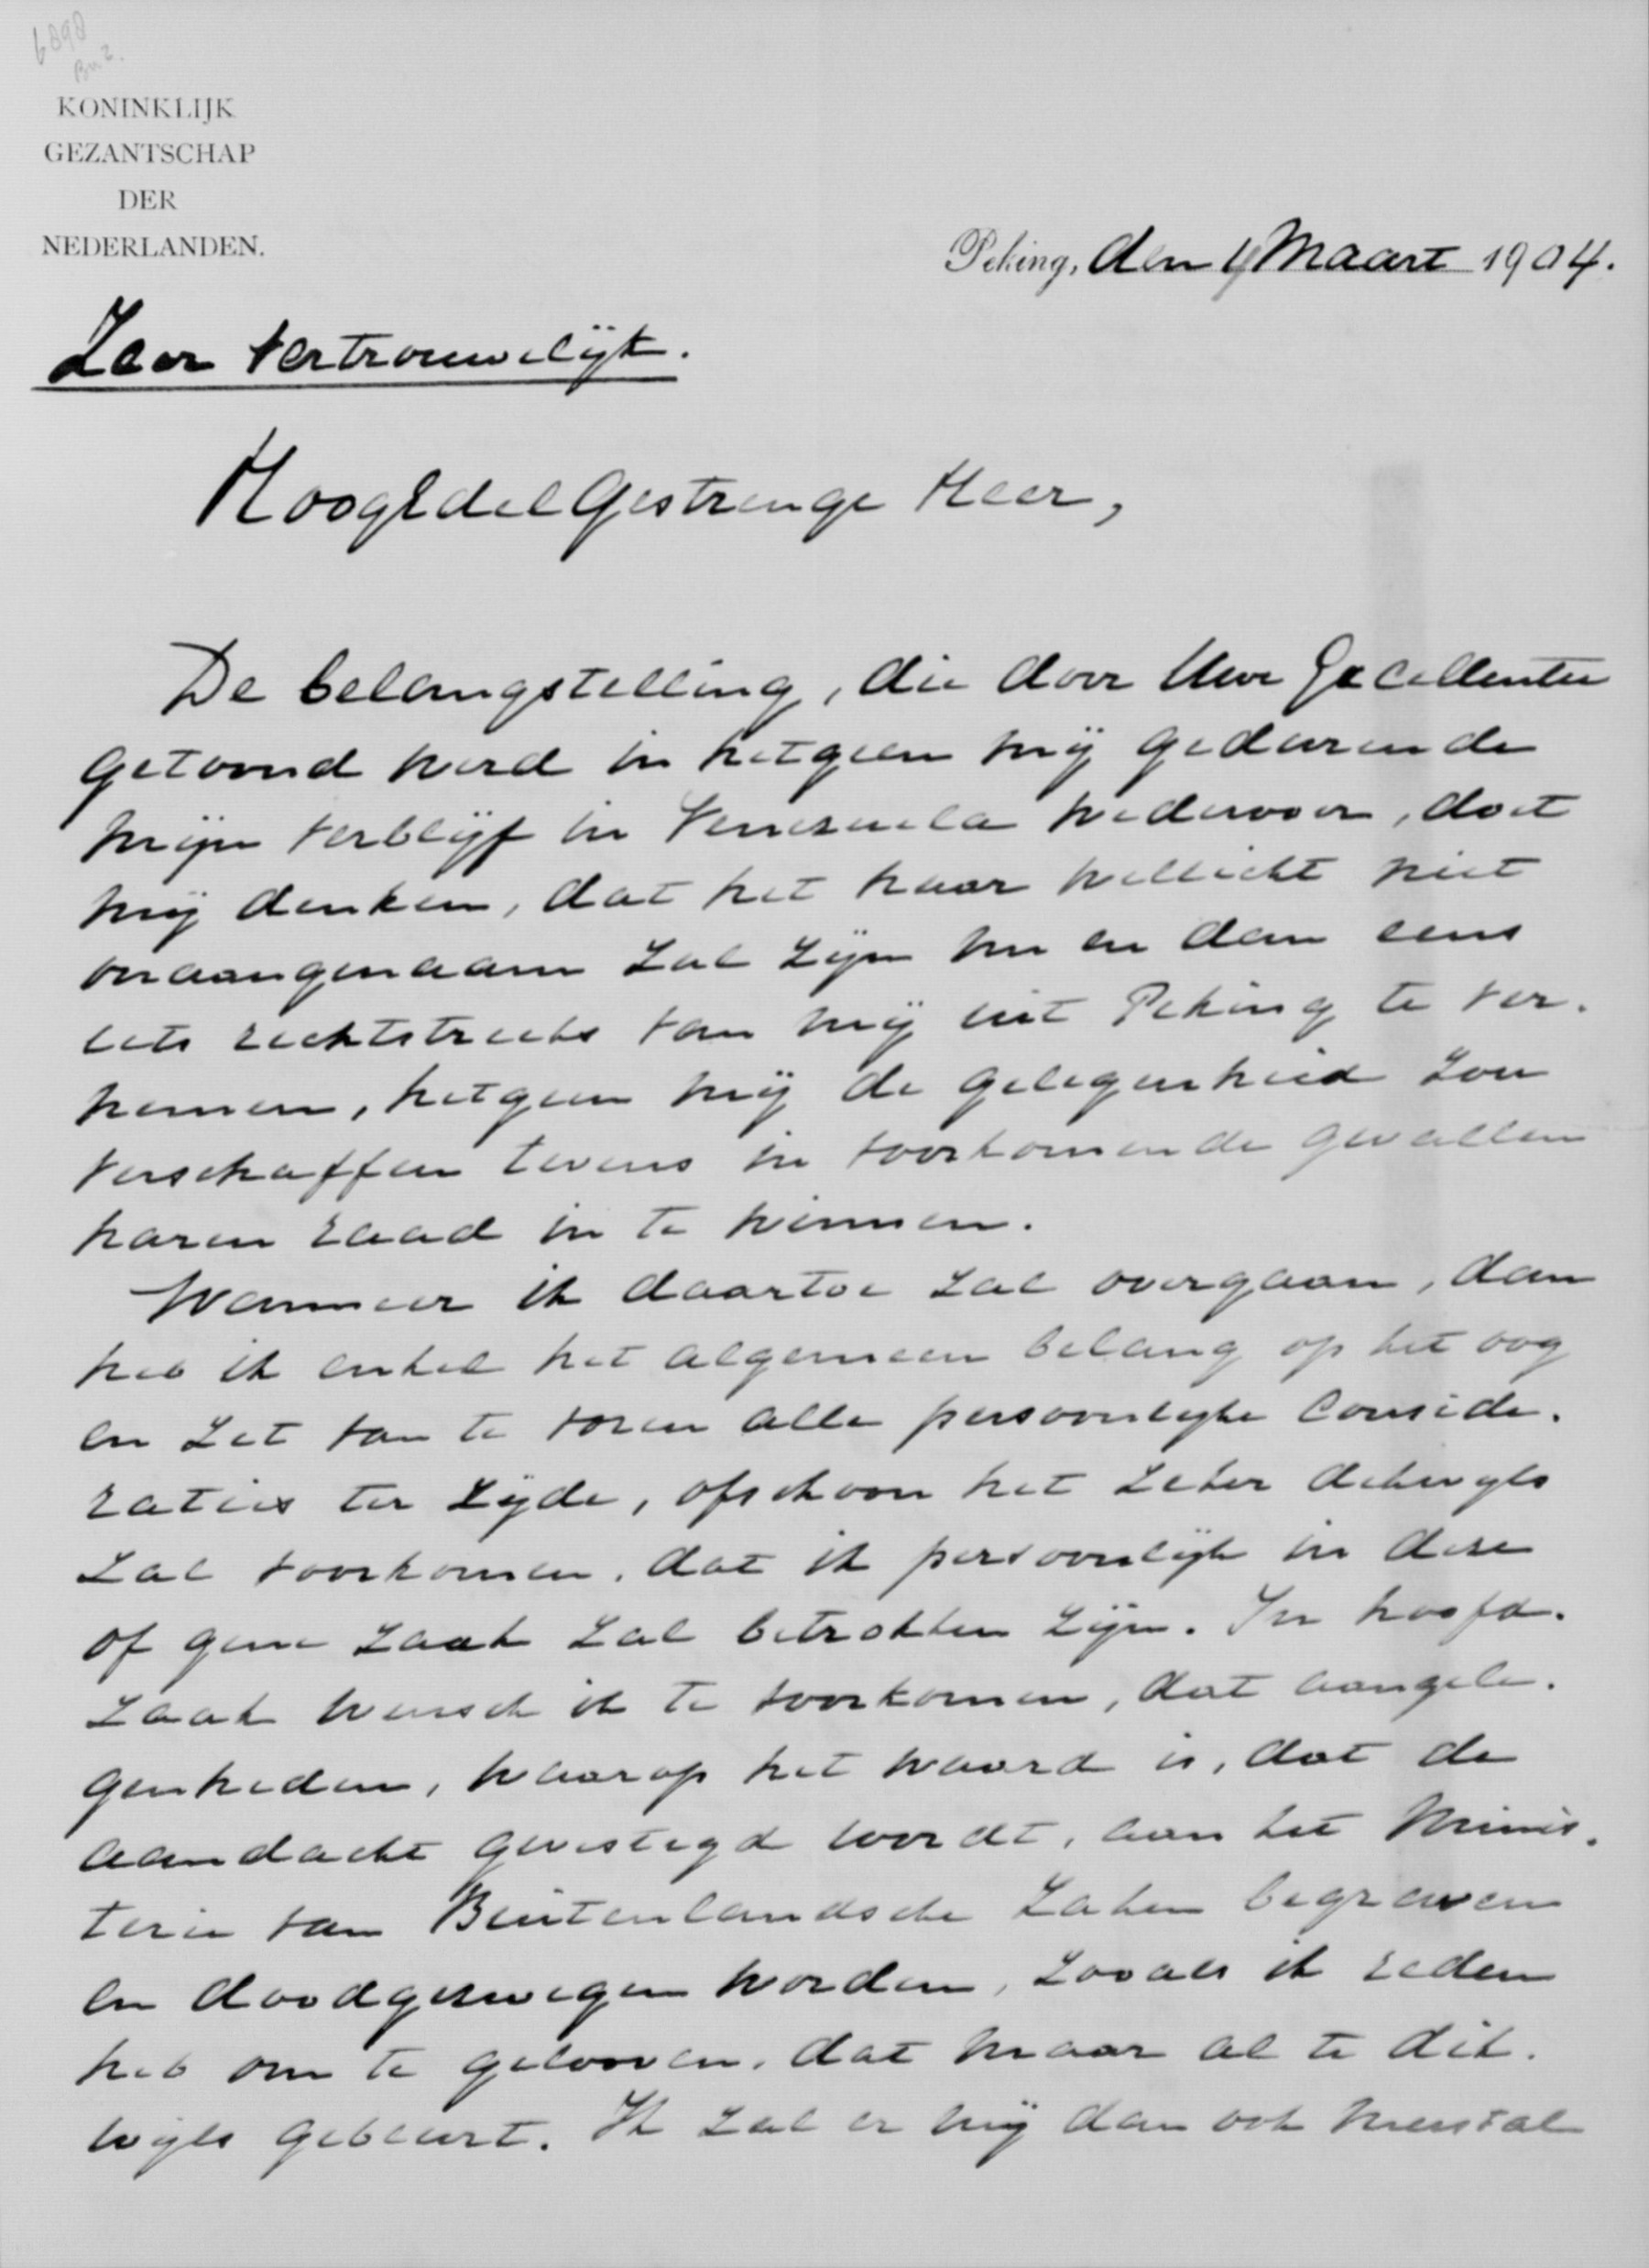 6898
KONINKLIJK
GEZANTSCHAP
DER
NEDERLANDEN.
Peking, den 4 Maart 1904.
Zeer vertrouwelijk.
HoogEdelGestrenge Heer,
De belangstelling, die door Uwe Excellentie
getoond werd in hetgeen mij gedurende
mijn verblijf in Venezuela wedervoer, doet
mij denken, dat het haar wellicht niet
onaangenaam zal zijn nu en dan eens
iets rechtstreeks van mij uit Peking te ver-
nemen, hetgeen mij de gelegenheid zou
verschaffen tevens in voorkomende gevallen
haren raad in te winnen.
Wanneer ik daartoe zal overgaan, dan
heb ik enkel het algemeen belang op het oog
en zet van te voren alle persoonlijke conside-
raties ter zijde, ofschoon het zeker dikwijls
zal voorkomen, dat ik persoonlijk in deze
of gene zaak zal betrokken zijn. In hoofd-
zaak wensch ik te voorkomen, dat aangele-
genheden, waarop het waard is, dat de
aandacht gevestigd wordt, aan het Minis-
terie van Buitenlandsche Zaken begraven
en doodgezwegen worden, zooals ik reden
heb om te gelooven, dat maar al te dik-
wijls gebeurt. Ik zal er mij dan ook meestal